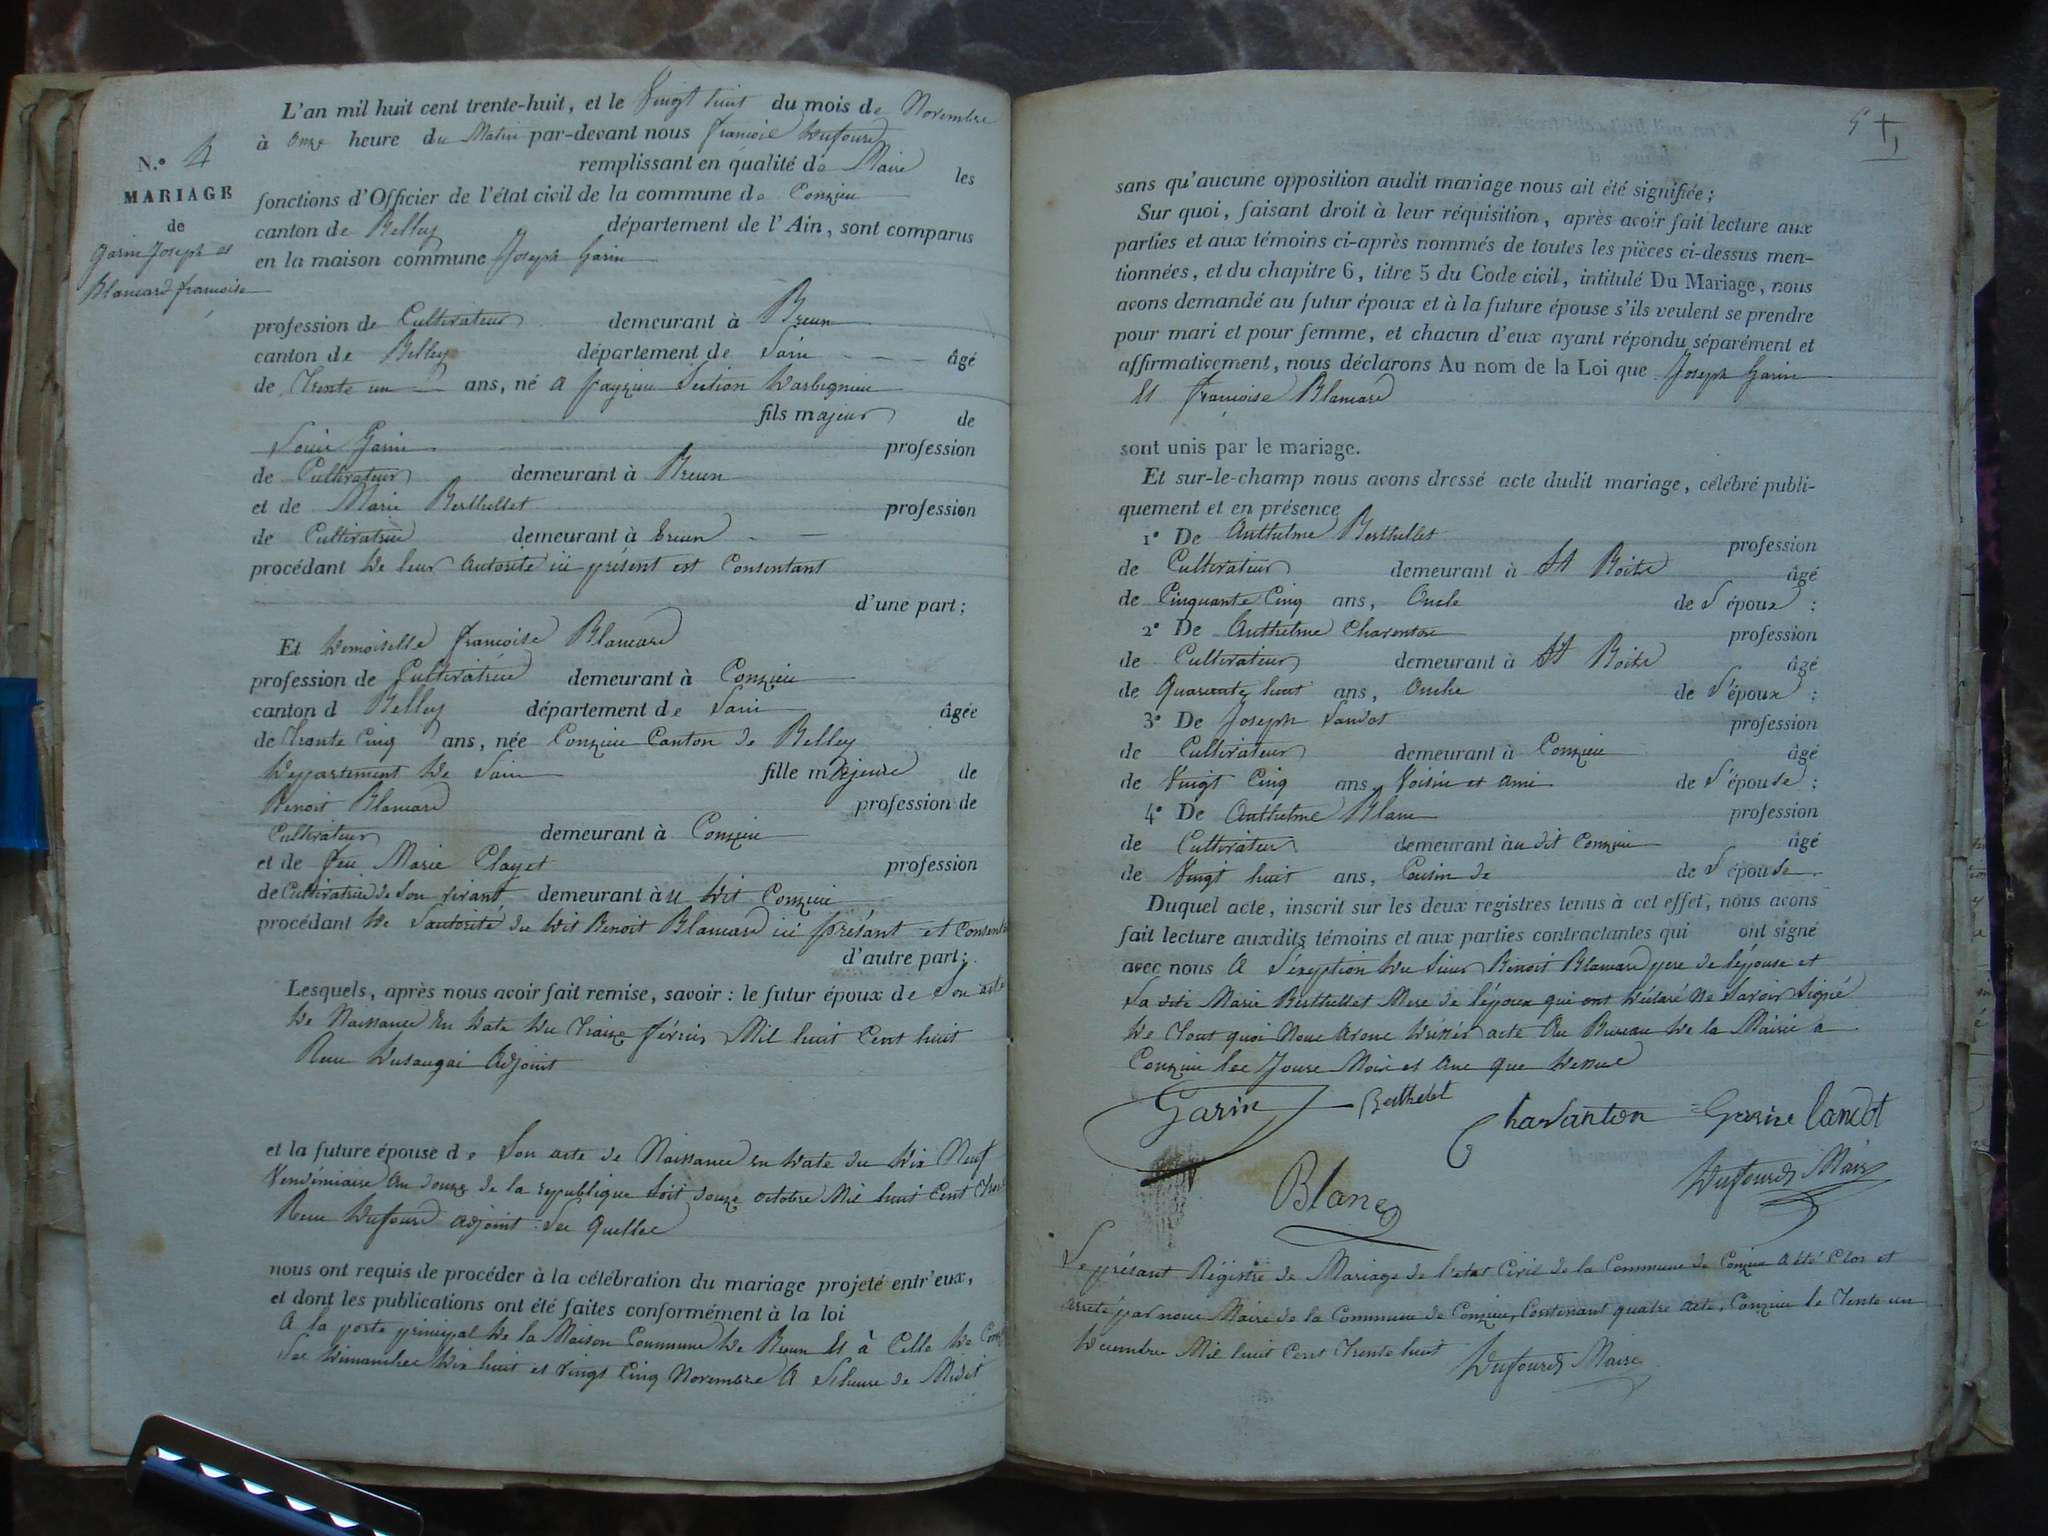 L'an mil huit cent trente-huit, et le Vingt huit du mois de Novembre
à onze heure du Matin par-devant nous francoi Dufour
N.º 4
remplissant en qualité de Maire les
MARIAGE
fonctions d'Officier de l'état civil de la commune de Conzieu
de
canton de Belley département de l'Ain, sont comparus
Garin Joseph et
en la maison commune Joseph Garin
Blancard francoise
profession de Cultivateur demeurant à Breun
canton de Belley département de Lain âgé
de Trente un ans, né a Section
fils majeur de
Louis Garin profession
de Cultivateur demeurant à Breun
et de Marie Berthellet profession
de Cultivatrice demeurant à breun
procédant De leur autorité ici présent est Consentant
d'une part;
Et Demoiselle francoise Blancard
profession de Cultivatrice demeurant à Conzieu
canton d Belley département de Lain âgée
de Trente Cinq ans, née Conzieu Canton de Belley
Departement De Lain fille majeure de
Benoit Blancard profession de
Cultivateur demeurant à Conzieu
et de feu Marie Clayet profession
de Cultivatrice de Son vivant demeurant àu Dit Conzieu
procédant De Lautorité du Dit Benoit Blancard ici présant et Consent
d'autre part;
Lesquels, après nous avoir fait remise, savoir: le futur époux de Son acte
De Naissance En Date Du Traize février Mil huit Cent huit
Adjoint
et la future épouse de Son acte de Naissance En Date du Dix Neuf
Vendémiaire An douze de la republique Soit douze octobre Mil huit Cent
Dufour adjoint
nous ont requis de procéder à la célébration du mariage projeté entr'eux,
et dont les publications ont été faites conformément à la loi
A la porte principal De la Maison Commune De Breun Et à Celle De
Les Dimanches Dix huit et Vingt Cinq Novembre A de Midit
5
sans qu'aucune opposition audit mariage nous ait été signifiée;
Sur quoi, faisant droit à leur réquisition, après avoir fait lecture aux
parties et aux témoins ci-après nommés de toutes les pièces ci-dessus men-
tionnées, et du chapitre 6, titre 5 du Code civil, intitulé Du Mariage, nous
avons demandé au futur époux et à la future épouse s'ils veulent se prendre
pour mari et pour femme, et chacun d'eux ayant répondu séparément et
affirmativement, nous déclarons Au nom de la Loi que Joseph Garin
Et francoise Blancard
sont unis par le mariage.
Et sur-le-champ nous avons dressé acte dudit mariage, célébré publi-
quement et en présence
1º De Anthelme Berthellet profession
de Cultivateur demeurant à St Boits âgé
de Cinquante Cinq ans, Oncle de L'époux;
2º De Anthelme Charenton profession
de Cultivateur demeurant à St Boits âgé
de Quarante huit ans, Oncle de L'époux;
3º De Joseph Landot profession
de Cultivateur demeurant à Conzieu âgé
de Vingt Cinq ans, Voisin et ami de L'épouse;
4º De Anthelme Blanc profession
de Cultivateur demeurant àu dit Conzieu âgé
de Vingt huit ans, Cousin de de L'épouse.
Duquel acte, inscrit sur les deux registres tenus à cet effet, nous avons
fait lecture auxdits témoins et aux parties contractantes qui ont signé
avec nous A L'exeption Du Sieur Benoit Blancard pere de lépouse et
La dite Marie Berthellet Mere de lépoux qui ont Déclaré Ne Savoir Signé
De Tout quoi Nous Avons acte Au Bureau De la Mairie a
Conzieu les Jours Mois et Ans que Dessus
Garin Berthelet Chavanton Garin Landot
Blanc Dufour Maire
Le présant Régistre de Mariage de l'etat Civil de la Commune de Conzieu A été Clos et
arreté par nous Maire de la Commune de Conzieu, Contenant quatre acte, Conzieu le Trente un
Decembre Mil huit Cent Trente huit Dufour Maire